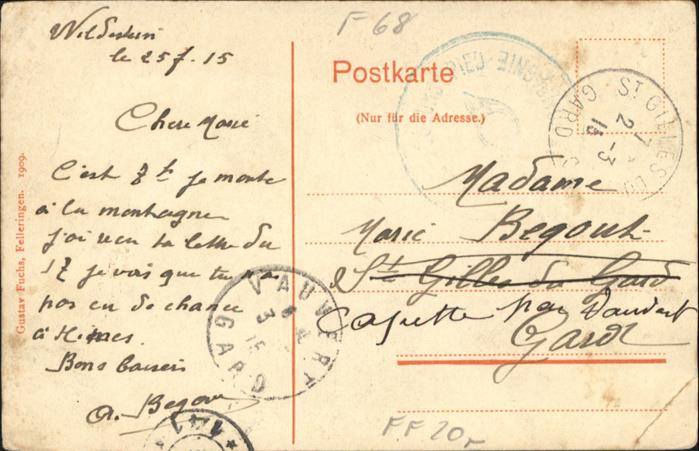 le 25 f. 15
Chere Marie
C'est 8 h je monte
à la montagne
j'ai reçu ta lettre du
17 je vois que tu n'a
pas eu de chance
à Nimes.
Bons baisers
Begou
Gustav Fuchs, Felleringen. 1909.
F-68
Postkarte
(Nur für die Adresse.)
ST GILLES DU GARD
27
3
Madame
Marie Begout
St Gilles du Gard
par Vauvert
Gard
VAUVERT
GARD
FF 20